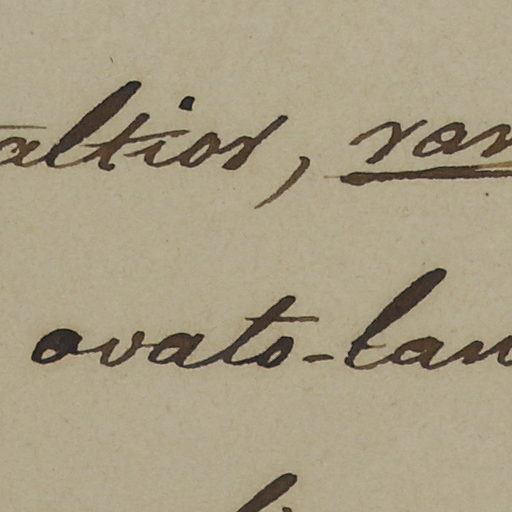 altior, ram
ovato-lan